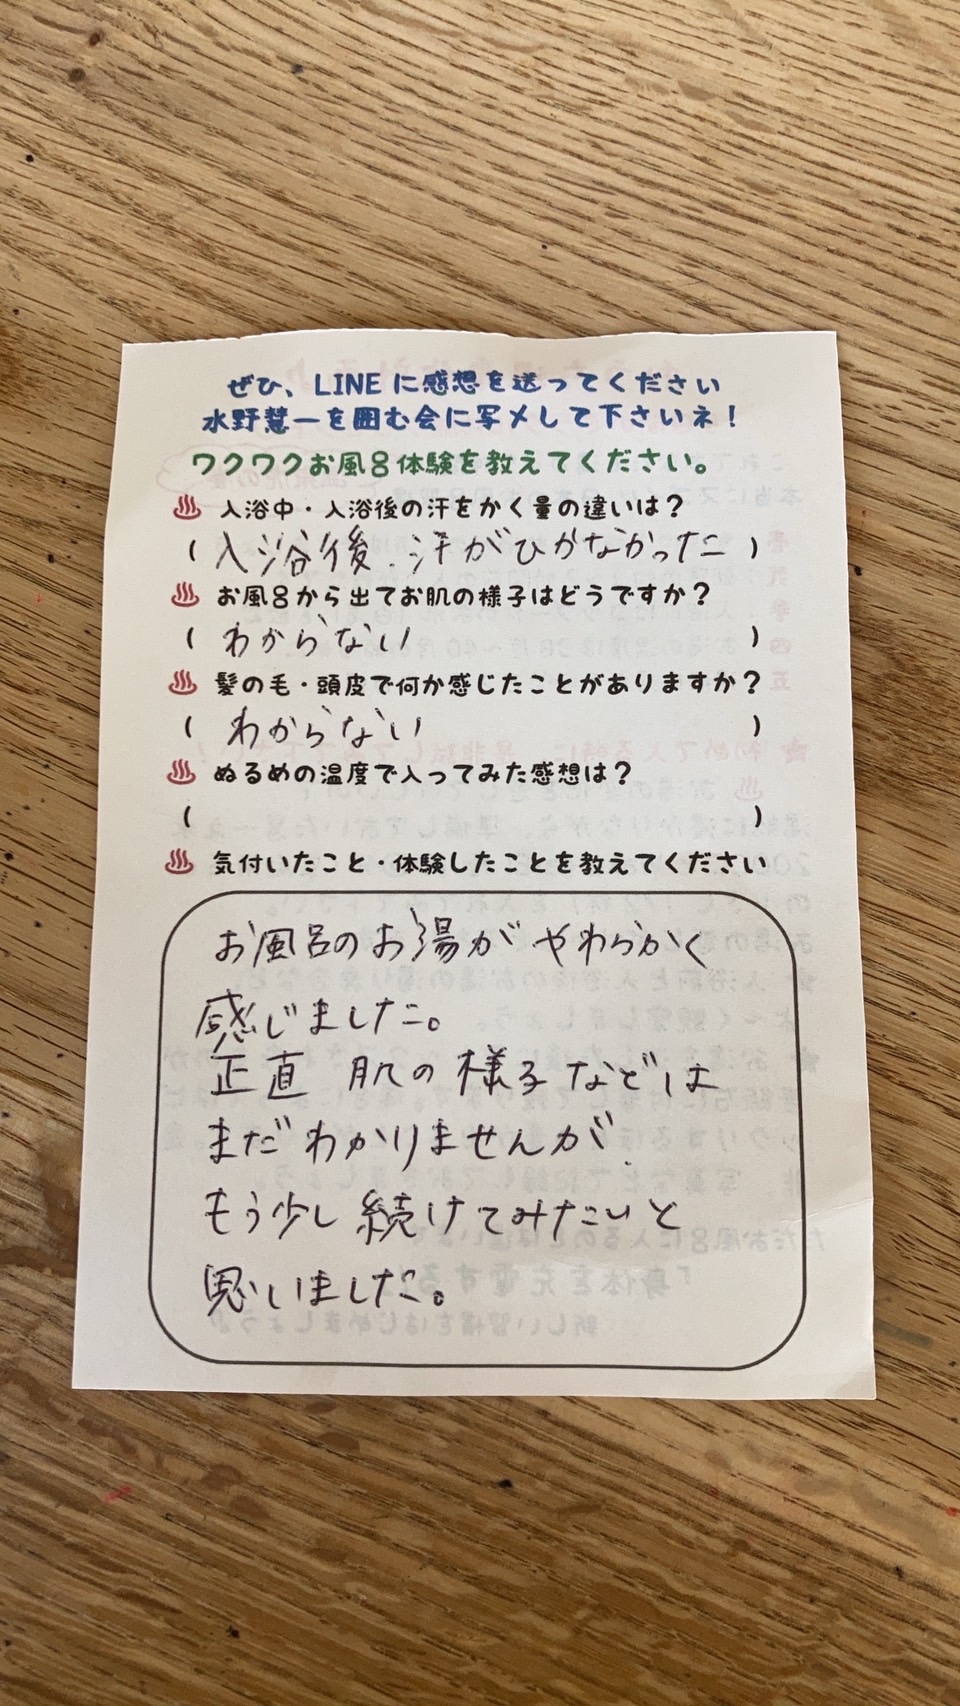 ぜひ、LINEに感想を送ってください
水野慧一を囲む会に写メして下さいネ！
ワクワクお風呂体験を教えてください。
♨ 入浴中・入浴後の汗をかく量の違いは？
（入浴後.汗がひかなかった）
♨ お風呂から出てお肌の様子はどうですか？
（わからない）
♨ 髪の毛・頭皮で何か感じたことがありますか？
（わからない）
♨ ぬるめの温度で入ってみた感想は？
（ ）
♨ 気付いたこと・体験したことを教えてください
お風呂のお湯がやわらかく
感じました。
正直 肌の様子などは
まだわかりませんが.
もう少し続けてみたいと
思いました。